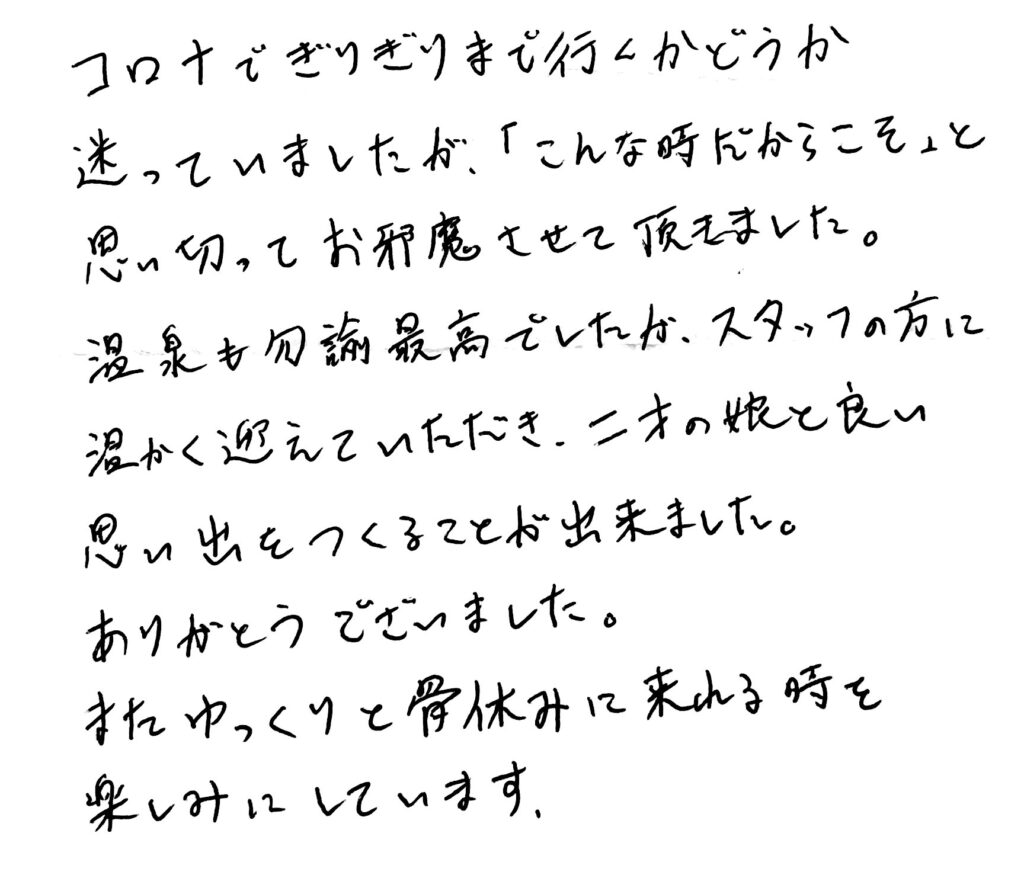 コロナでぎりぎりまで行くかどうか
迷っていましたが、「こんな時だからこそ」と
思い切ってお邪魔させて頂きました。
温泉も勿論最高でしたが、スタッフの方に
温かく迎えていただき、二才の娘と良い
思い出をつくることが出来ました。
ありがとうございました。
またゆっくりと骨休みに来れる時を
楽しみにしています。